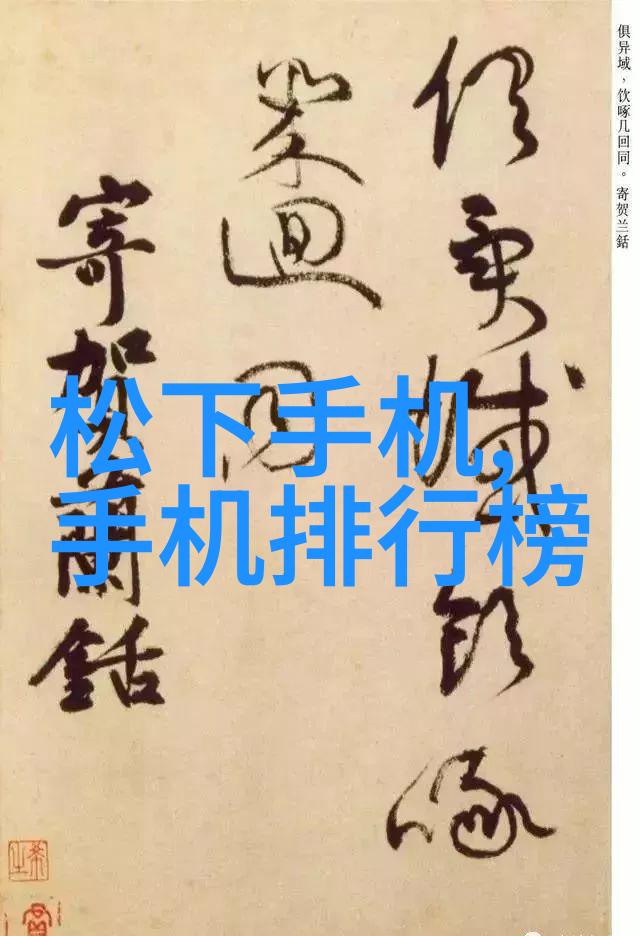 俱异域，饮啄几回同。寄贺兰銛
俱異域飲啄
幾迴同
寄賀蘭銛
松下手机,
手机排行榜